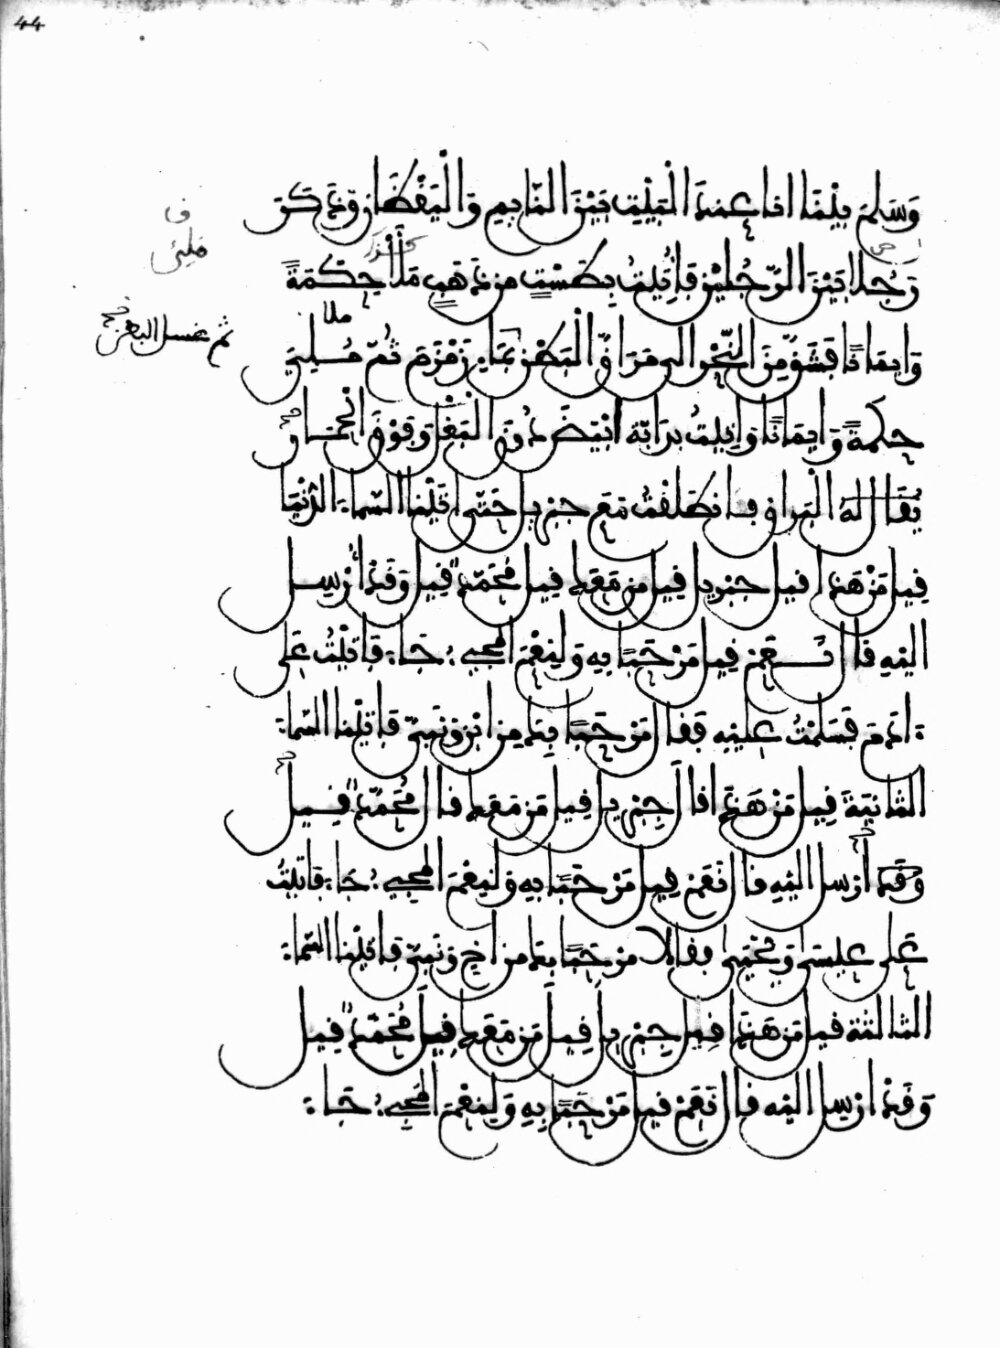 44
وَسَلمَ بَيْنَا انا عِندَ الْبَيْتِ بَيْنَ النَّايِمِ وَالْيَقْظَانِ وَذَكَرَ
رَجُلا بَيْنَ الرَّجُلَيْنِ فَأُتِيتُ بِطَسْتٍ مِن ذَهَبٍ مَلَأ حِكْمَةً
وَإيمَانًا فَشَقَّ مِنَ النَّحْرِ الى مَرَاقِّ الْبَطْنِ بمَاءِ زَمْزَمَ ثُمَّ مُلِئَ
حِكمَةً وَإيمَانًا وَاتِيتُ بِدَابَّة أبْيَضَ دُونَ الْبَغْلِ وَفَوْقَ الْحِمَارِ
يُقَالُ لهُ الْبُرَاق فانطَلَقْتُ مَعَ جبريل حَتَّى اتَيْنَا السَّمَاءَ الدُّنْيَا
قِيلَ مَنْ هَذا قيل جبريل قِيلَ مَن مَعَكَ قِيلَ مُحَمَّدٌ قِيلَ وَقَدُ أرْسِلَ
اليْهِ قال نَعَمْ قِيلَ مَرْحَبًا بِهِ وَلَنِعْمَ المجيء جَاءَ فَاتَيْتُ عَلى
ءادَمَ فَسَلمْتُ عَلَيْهِ فَقالَ مَرْحَبًا بِكَ مِن ابْنٍ وَنَبِيّ فَاتَيْنا السَّماءَ
الثانيَةَ قِيلَ مَنْ هَذَا قالَ جِبْرِيل قِيلَ مَن مَعَكَ قالَ مُحَمَّدٌ قِيلَ
وَقَدُ أرْسِلَ اليْهِ قال نَعَمْ قِيلَ مَرْحَبًا بِهِ وَلَنِعْمَ المَجيء جَاءَ فاتَيْتُ
عَلَى عِيسَى وَيَحْيَى فقالا مَرْحَبًا بِكَ من أخٍ وَنَبيّ فَاتَيْنا السَّماءَ
الثالثَةَ قيلَ مَنْ هَذَا قِيلَ جِبْرِيل قِيلَ مَن مَعَكَ قِيلَ مُحَمَّدٌ قِيلَ
وَقَدُ ارْسِلَ اليْهِ قال نَعَمْ قيلَ مَرْحَبًا بِهِ وَلَنِعْمَ المَجِيء جَاءَ
ملا
ثم غسل البطن